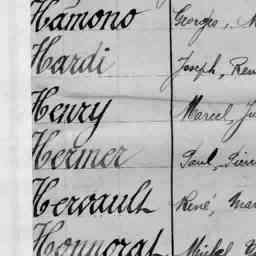 Hamono Georges,
Hardi Joseph, René
Henry Marcel, Ju
Hermer Paul, Pierr
Hervault René, Mar
Honnorat Michel